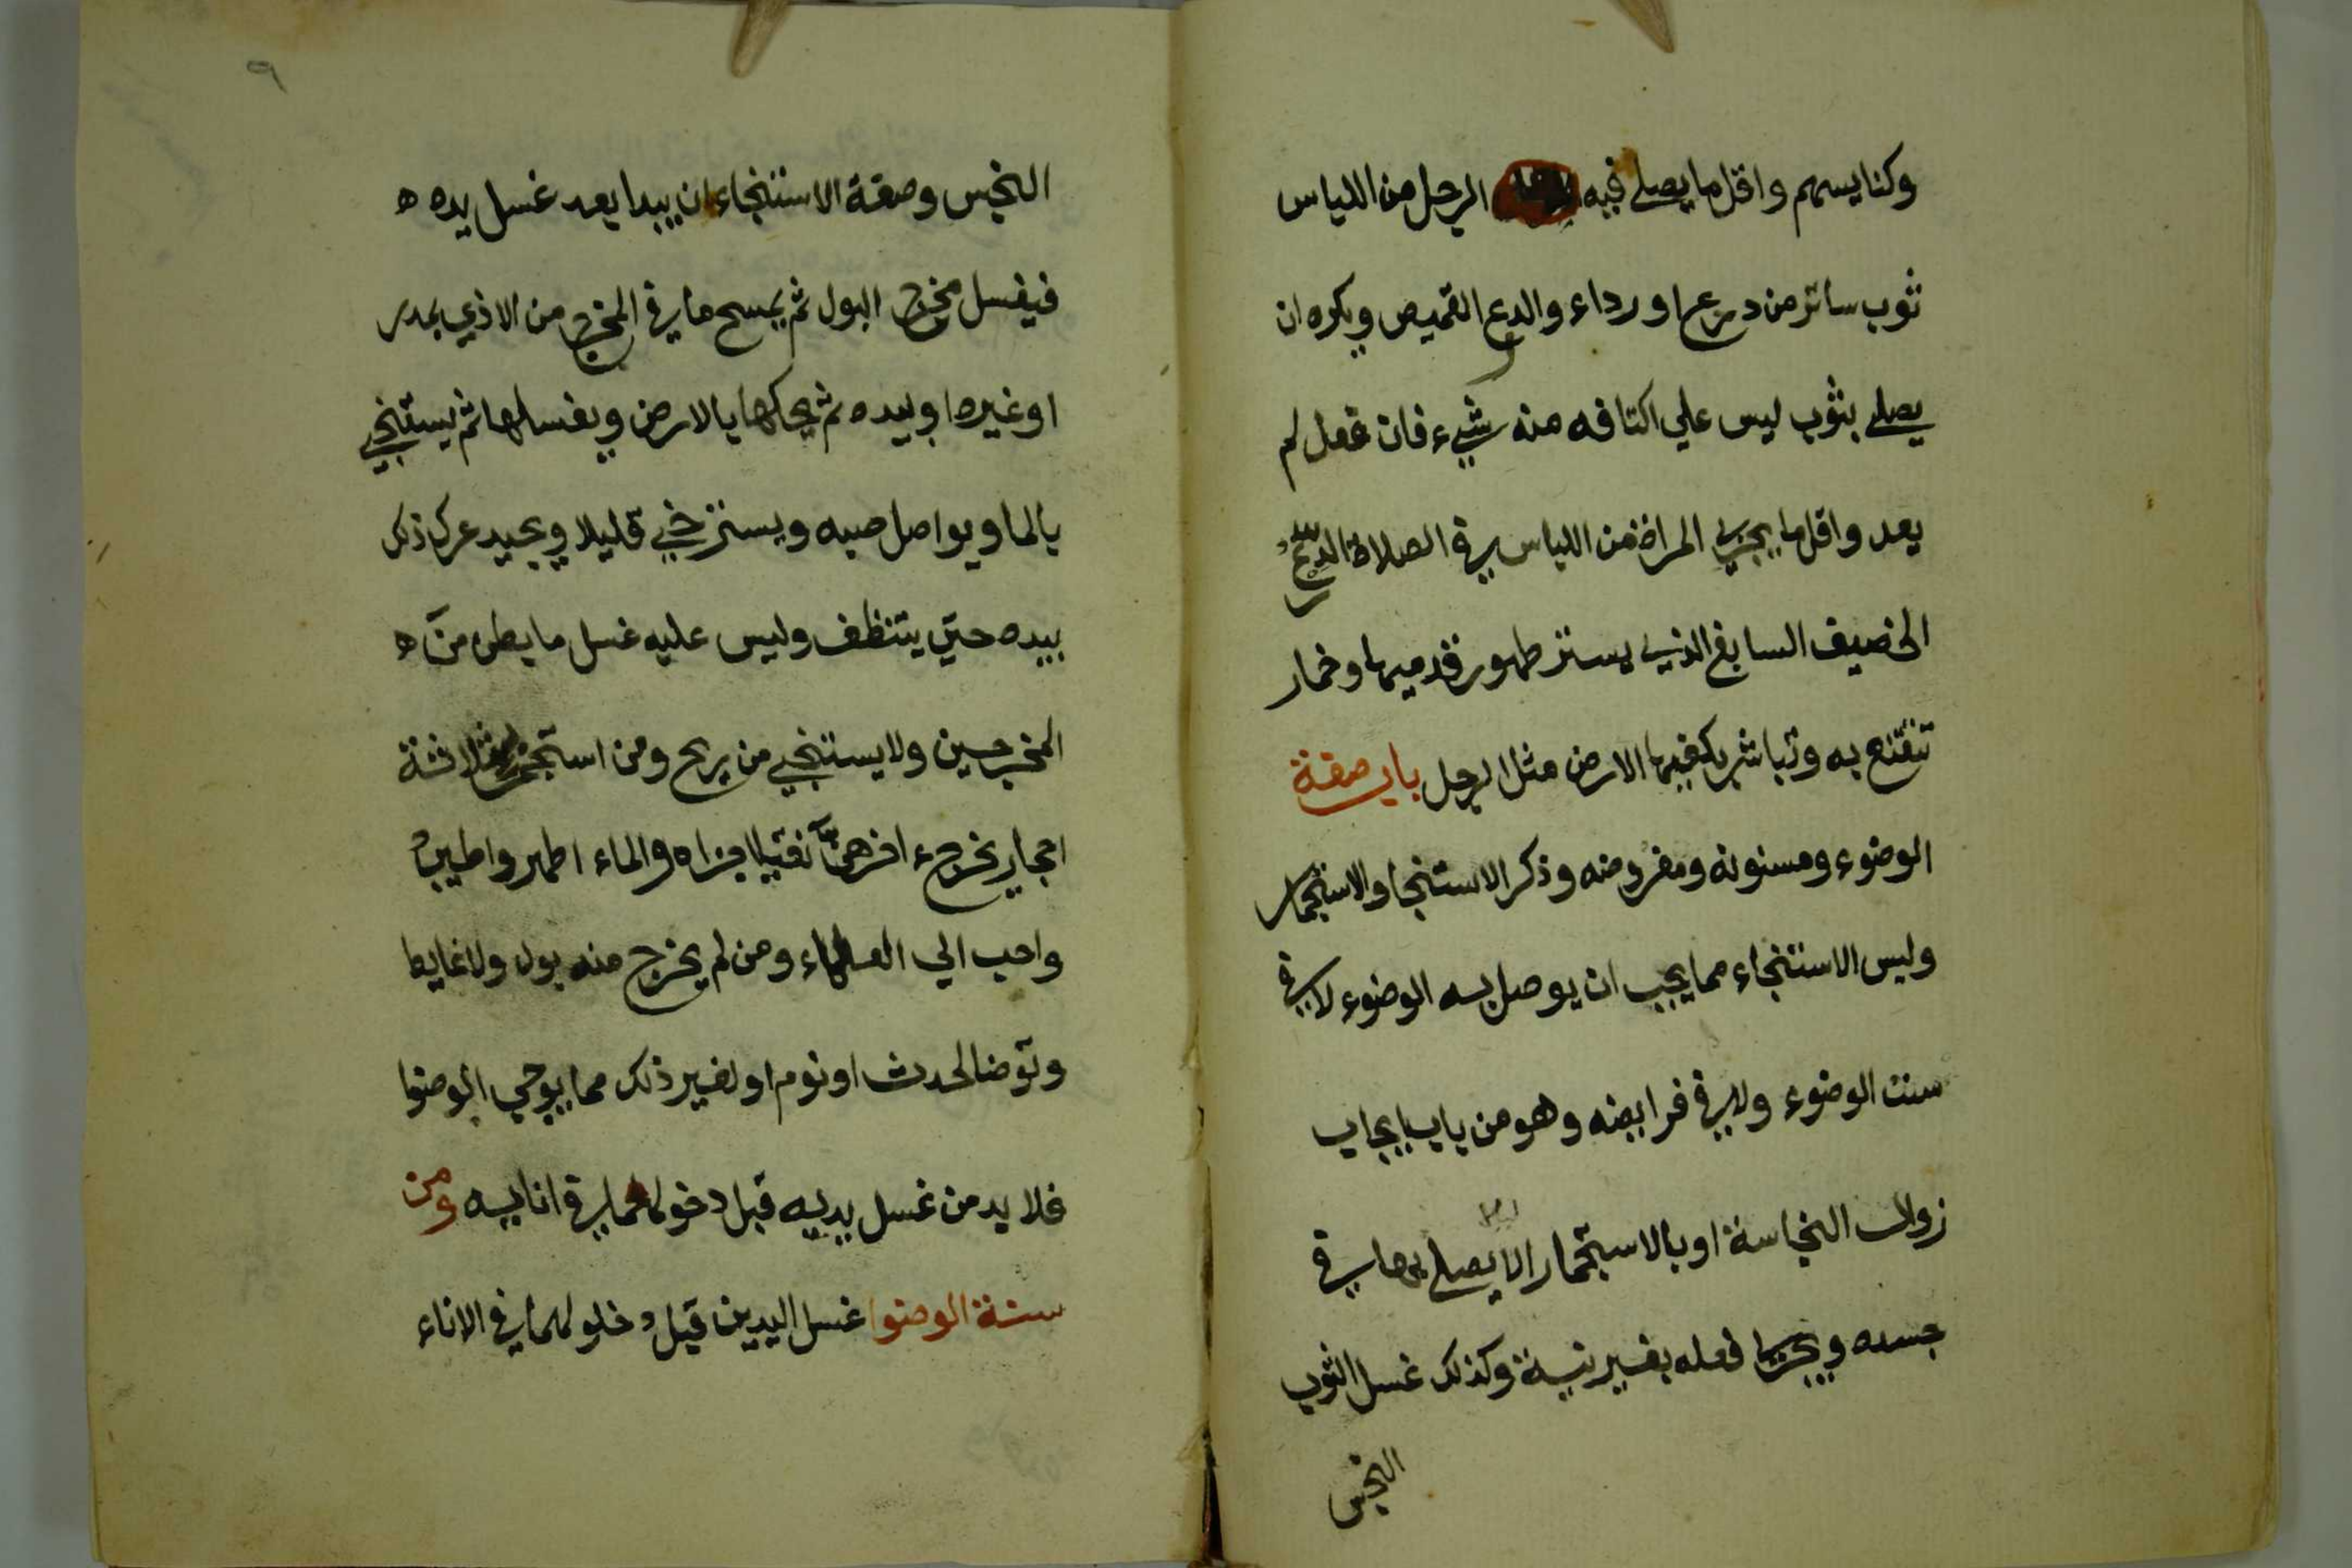 وكنايسهم واقل ما يصلي فيه الرجل من اللباس
ثوب ساتر من درع او رداء والدرع القميص ويكره ان
يصلي بثوب ليس علي اكتافه منه شيء فان فعل لم
يعد واقل ما يجزي المراة من اللباس في الصلاة الدرع
الخصيف السابغ الذي يستر ظهور قدميها وخمار
تتقنع به وتباشر بكفيها الارض مثل الرجل باب صفة
الوضوء ومسنونه ومفروضه وذكر الاستنجا والاستجمار
وليس الاستنجاء مما يجب ان يوصل به الوضوء لا في
سنت الوضوء ولا في فرايضه وهو من باب ايجاب
زوال النجاسة او بالاستجمار الا يصلي بها في
جسده ويجزي فعله بغير نية وكذلك غسل الثوب
النجس
٩
النجس وصفة الاستنجاء ان يبدا بعد غسل يده ه
فيغسل مخرج البول ثم يمسح ما في المخرج من الاذي بمدر
او غيره او بيده ثم يحكها بالارض ويغسلها ثم يستنجي
بالما ويواصل صبه ويسترخي قليلا ويجيد عرك ذلك
بيده حتي يتنظف وليس عليه غسل ما بطن من ه
المخرجين ولا يستنجي من ريح ومن استجمر بثلاثة
احجار يخرج اخرهن نقيا اجزاه والماء اطهر واطيب
واحب الي العلماء ومن لم يخرج منه بول ولا غايط
وتوضا لحدث او نوم او لغير ذلك مما يوجب الوضوا
فلا بد من غسل يديه قبل دخولهما في انايه ومن
سنة الوضوا غسل اليدين قبل دخلولهما في الاناء